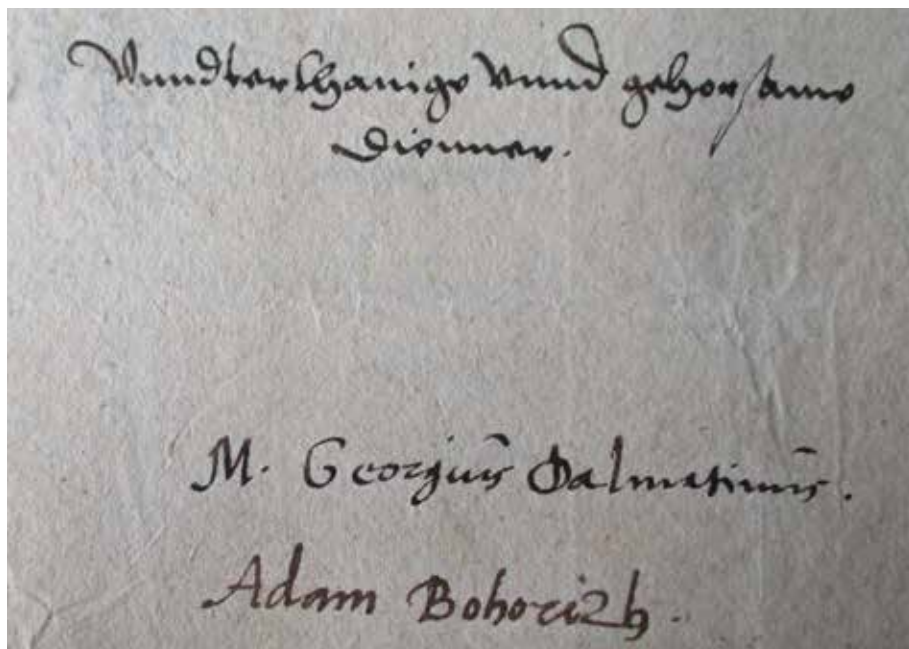 Vnndterthanige vnnd gehorsame
Dienner.
M. Georgius Dalmatinus.
Adam Bohorizh.